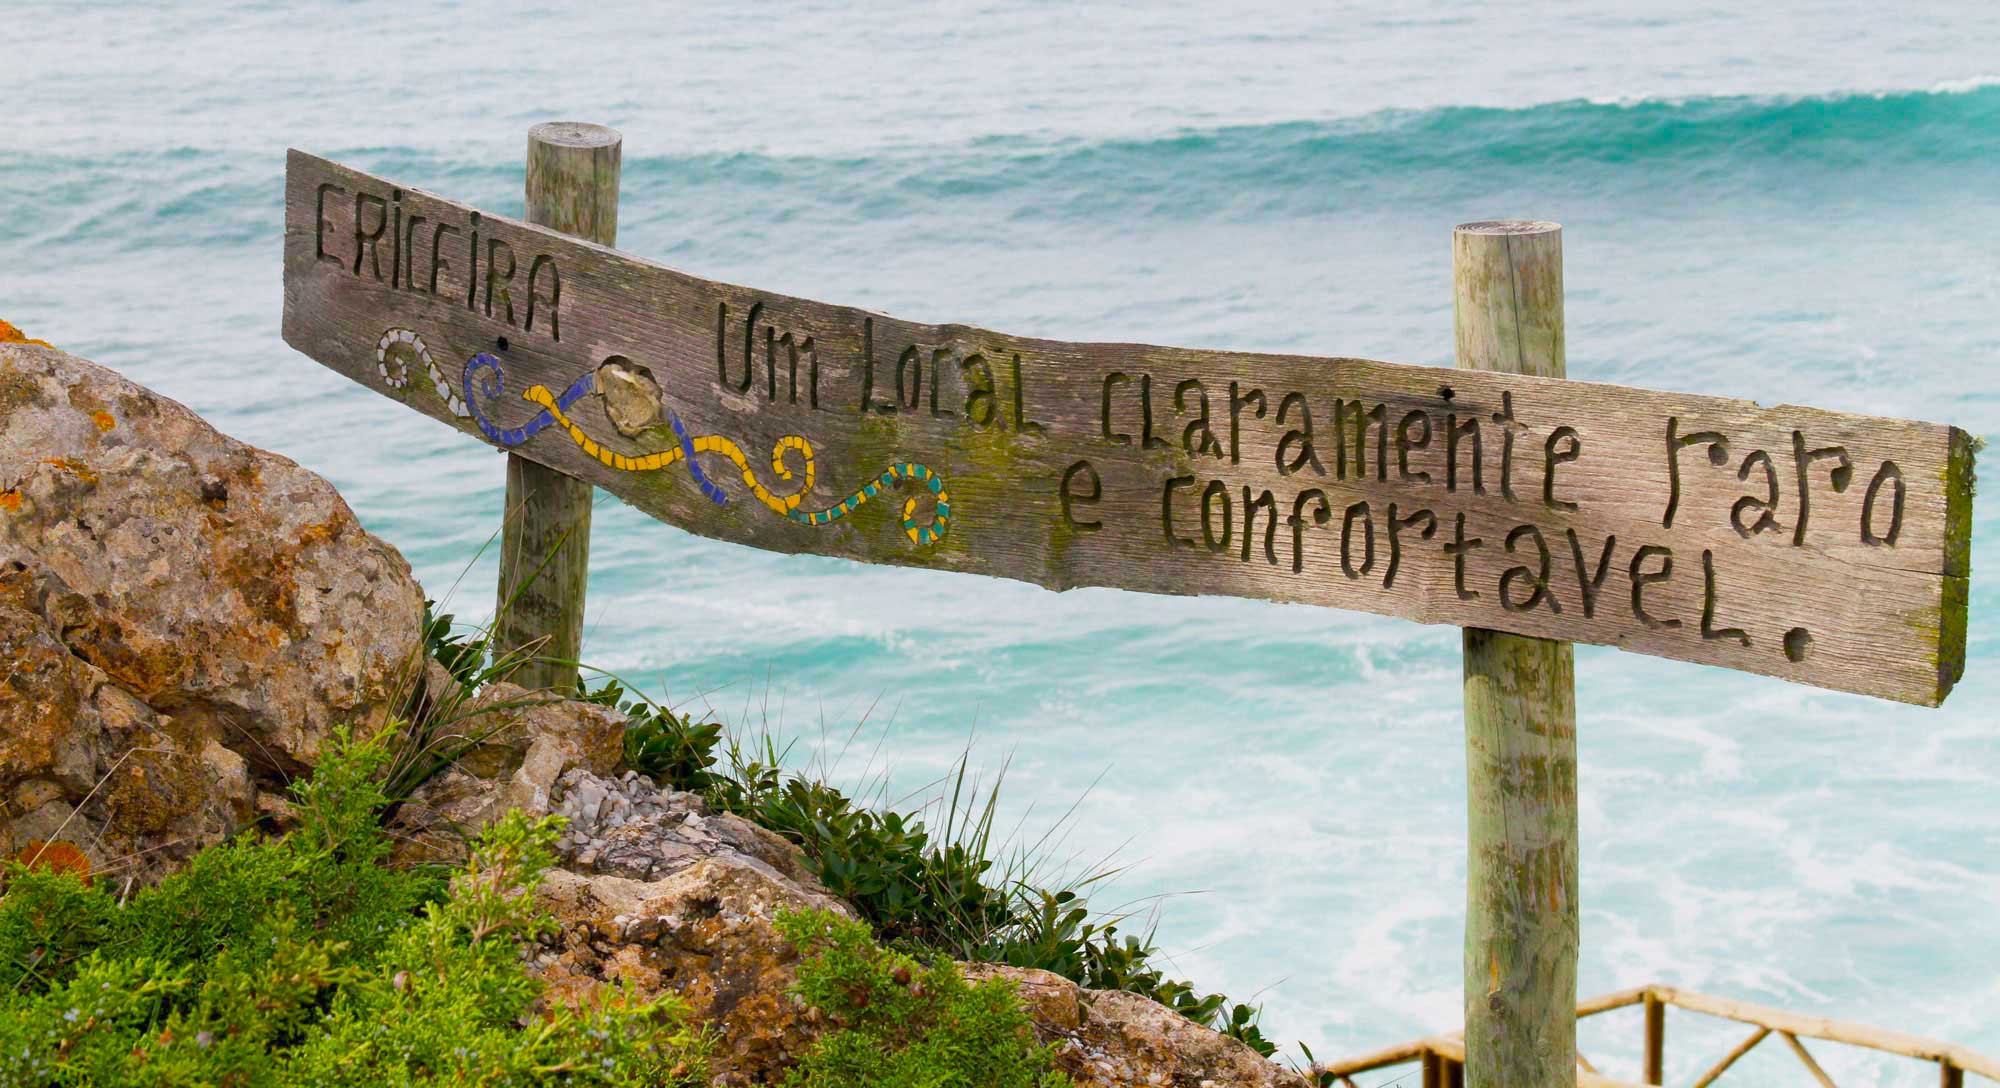 ERiCEiRA
Um Local claramente raro
e confortavel.